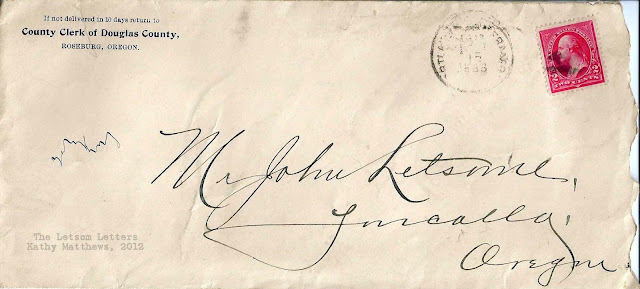 If not delivered in 10 days return to
County Clerk of Douglas County,
ROSEBURG, OREGON.
UNITED STATES POSTAGE
2 TWO CENTS 2
Mr John Letsome,
Yoncalla,
Oregon
The Letsom Letters
Kathy Matthews, 2012